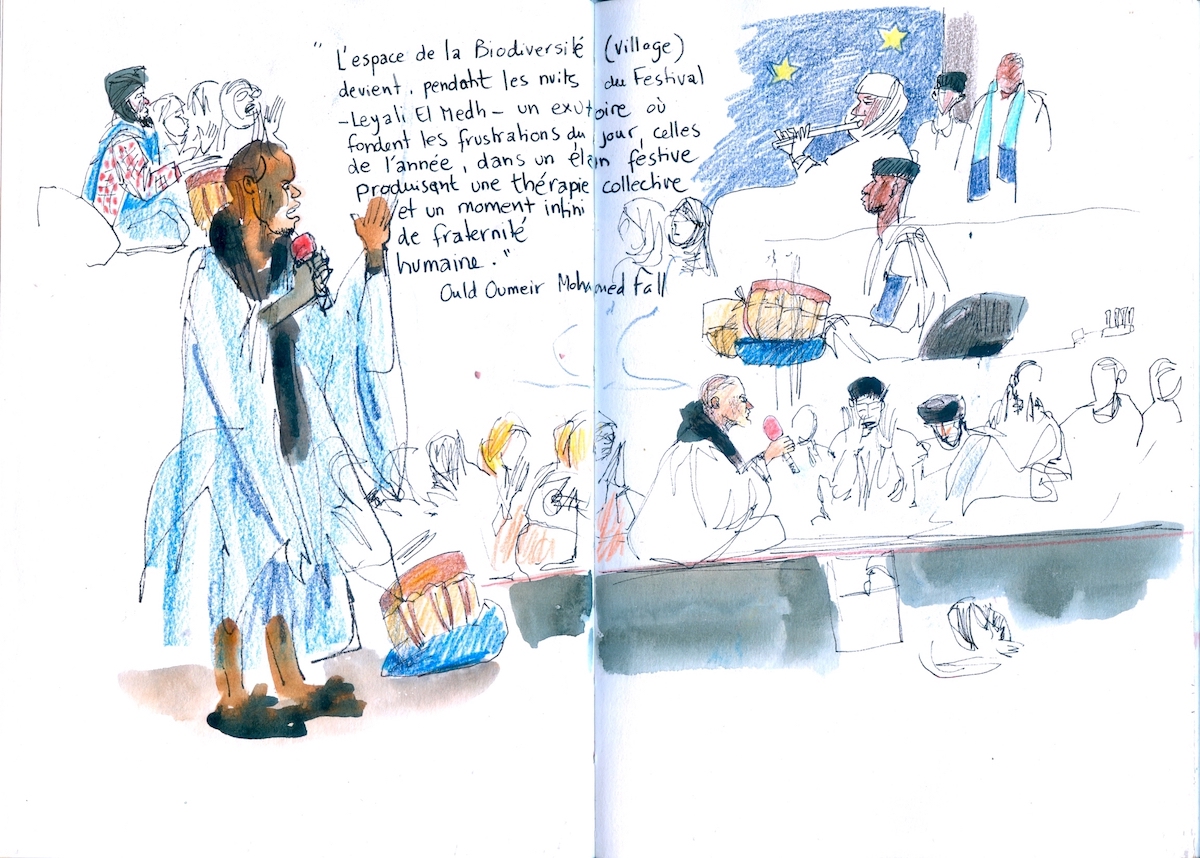 "L'espace de la Biodiversité (Village)
devient, pendant les nuits du Festival
-Leyali El Medh- un exutoire où
fondent les frustrations du jour, celles
de l'année, dans un élan festive
produisant une thérapie collective
et un moment infini
de fraternité
humaine."
Ould Oumeir Mohamed Fall